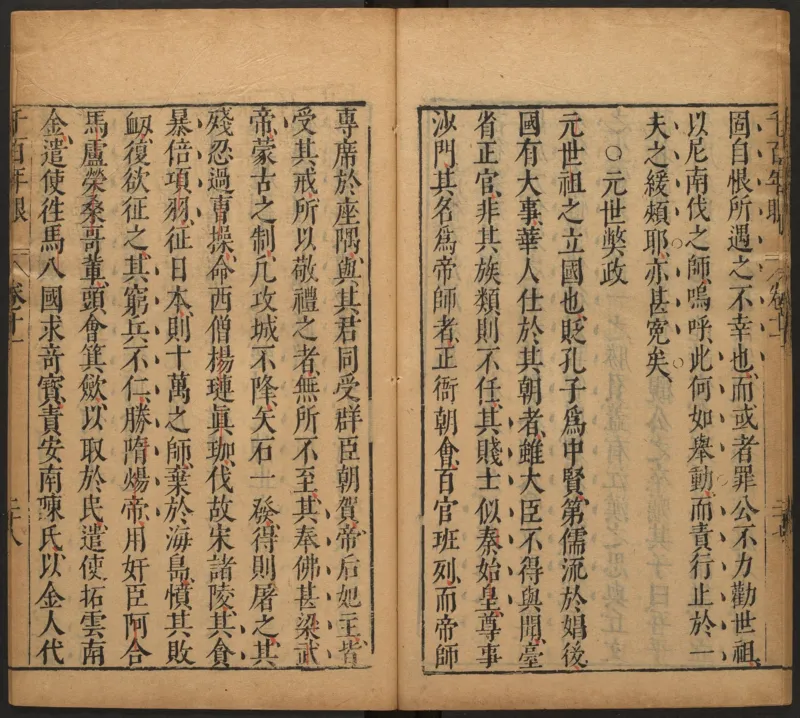 固自恨所遇之不幸也而或者罪公不力勸世祖
以尼南伐之師嗚呼此何如舉動而責行止於一
夫之緩頰耶亦甚寃矣
○元世獘政
元世祖之立國也貶孔子爲中賢第儒流於娼後
國有大事華人仕於其朝者雖大臣不得與聞臺
省正官非其族類則不任其賤士似秦始皇尊事
沙門其名爲帝師者正衙朝會百官班列而帝師
專席於座隅與其君同受群臣朝賀帝后妃主皆
受其戒所以敬禮之者無所不至其奉佛甚梁武
帝蒙古之制凡攻城不降矢石一發得則屠之其
殘忍過曹操命西僧楊璉眞珈伐故宋諸陵其貪
暴倍項羽征日本則十萬之師棄於海島憤其敗
衂復欲征之其窮兵不仁勝隋煬帝用奸臣阿合
馬盧榮桑哥軰頭會箕歛以取於民遣使拓雲南
金遣使徃馬八國求奇寳責安南陳氏以金人代
千百年眼
卷十一
二八